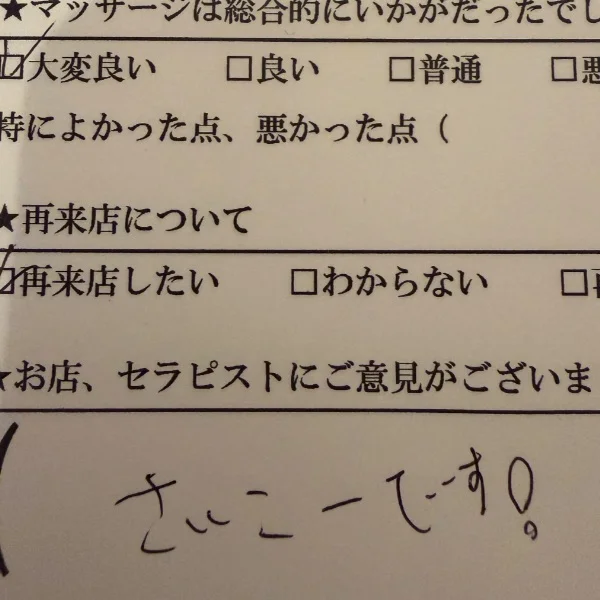 ★マッサージは総合的にいかがだったでし
☑大変良い □良い □普通 □悪
特によかった点、悪かった点（
★再来店について
☑再来店したい □わからない □再
★お店、セラピストにご意見がございま
（ さいこーです！